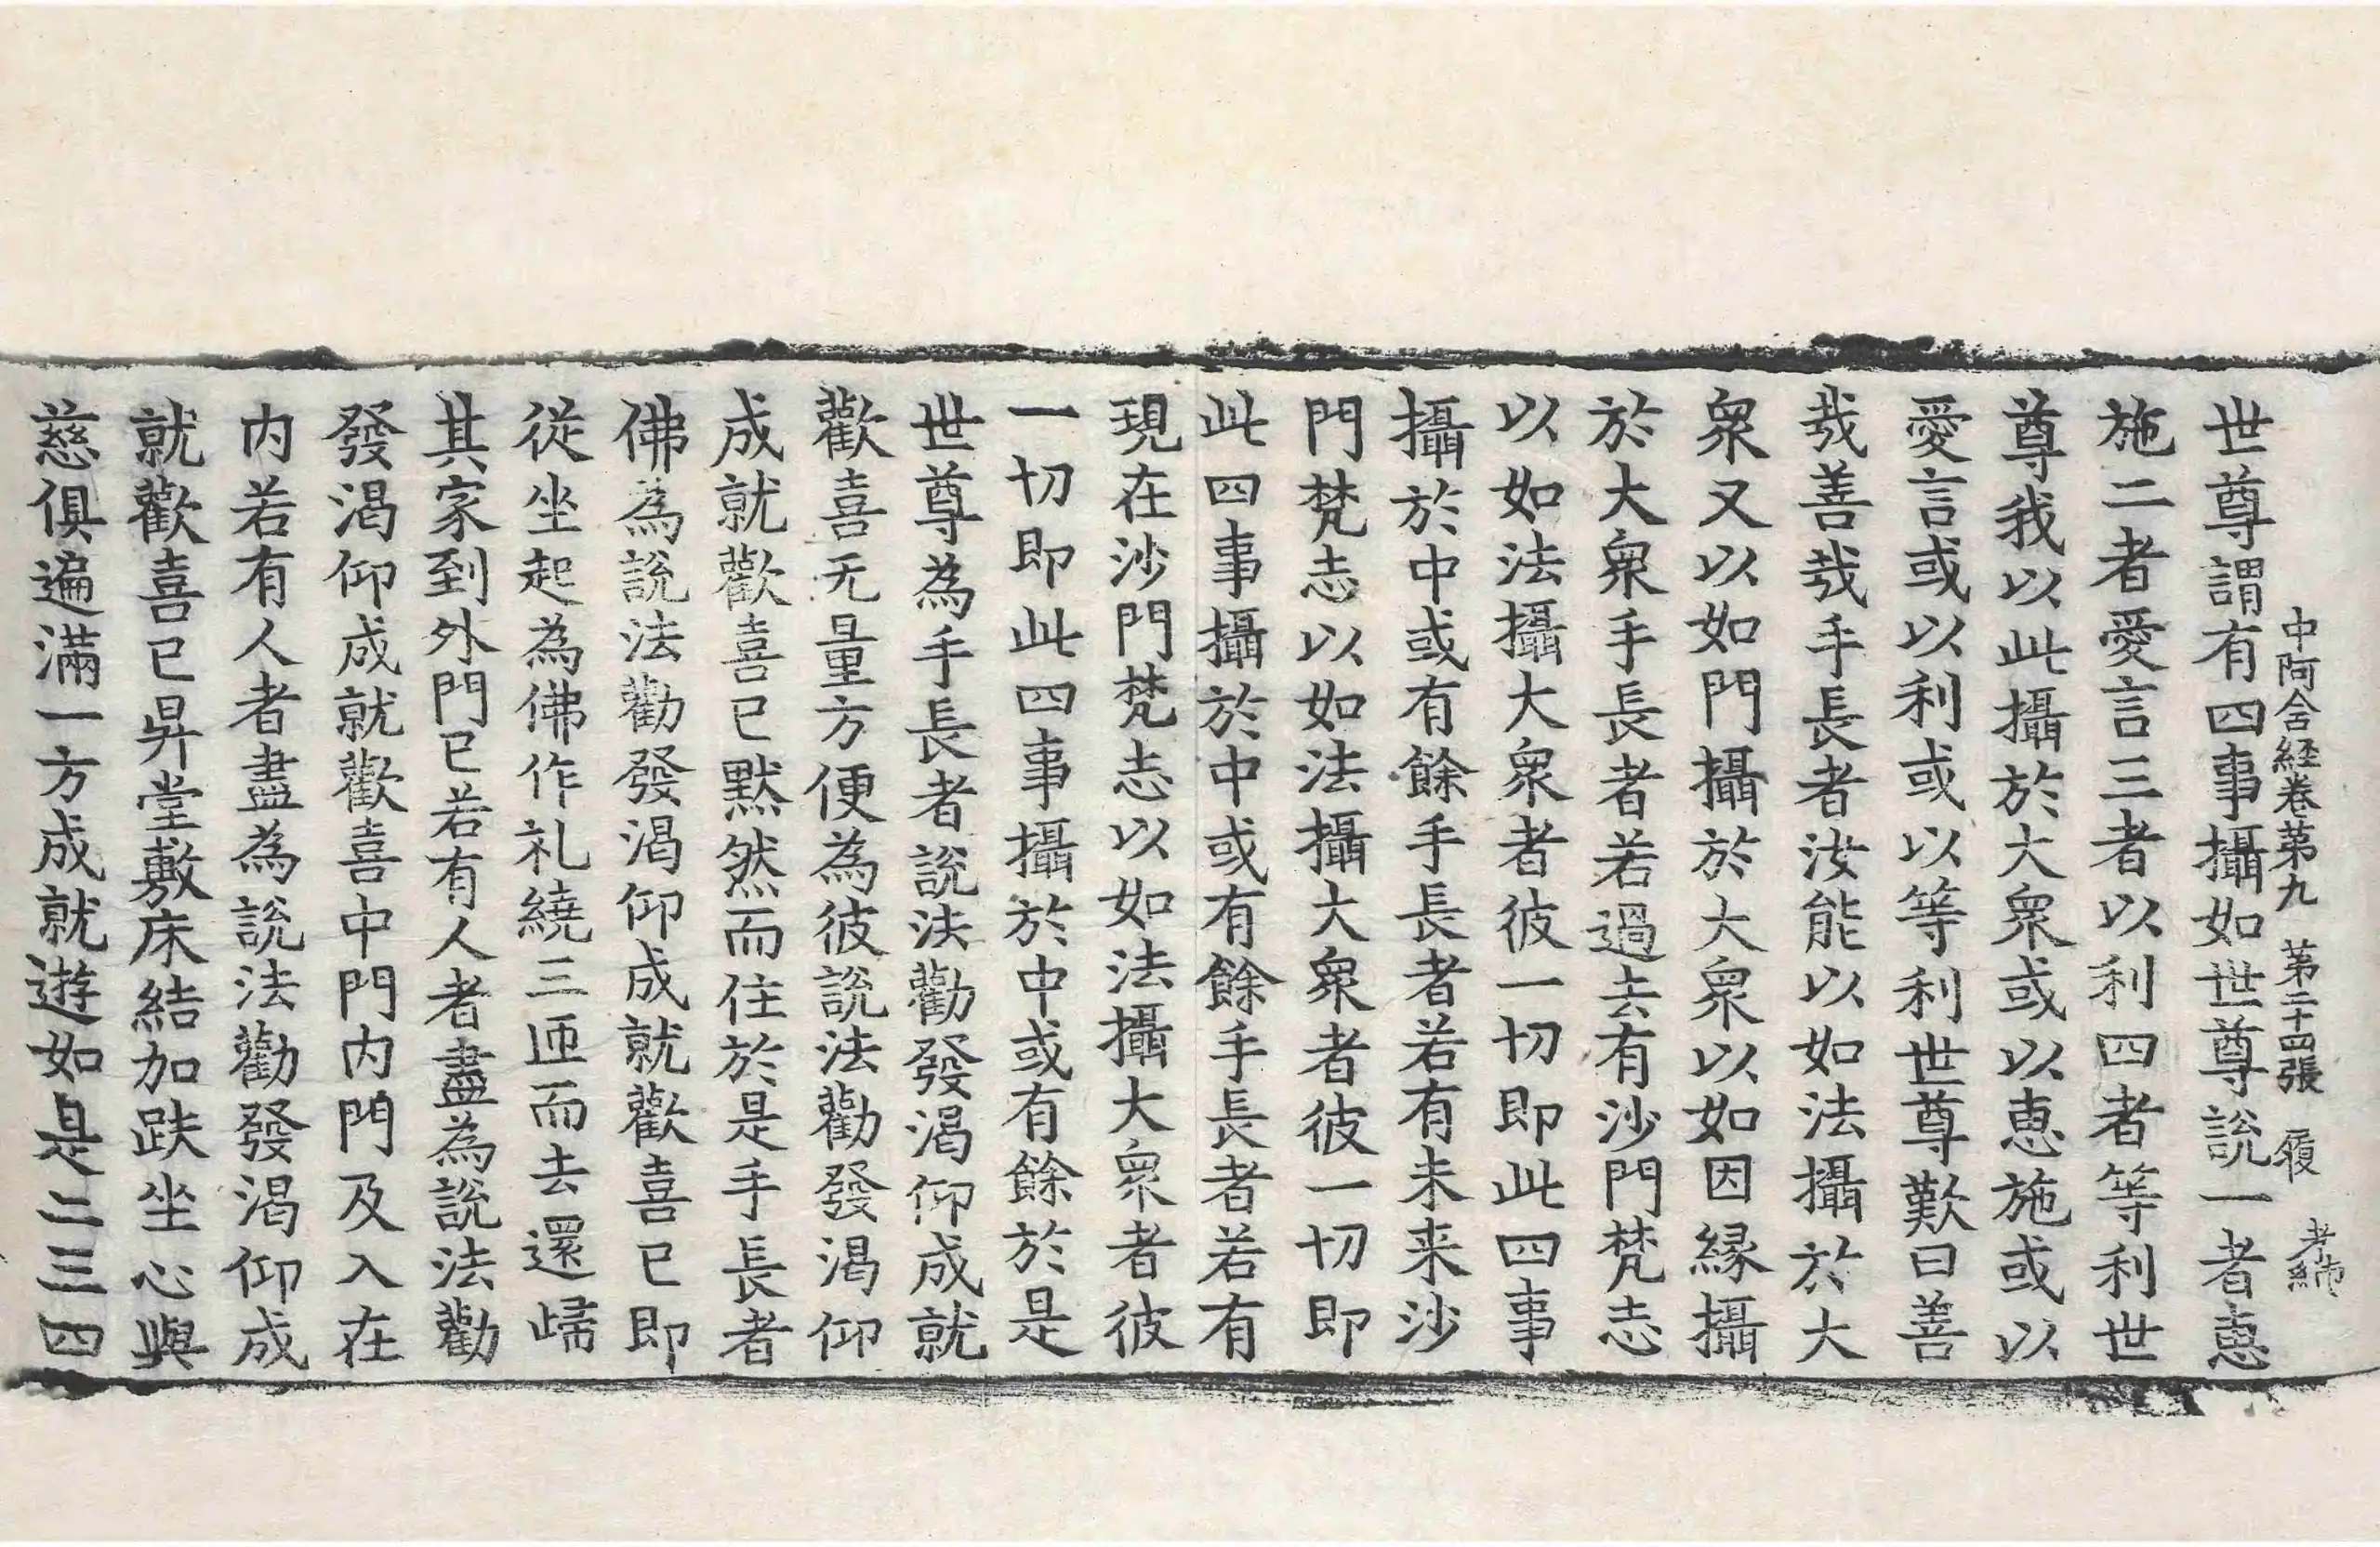 中阿含経卷苐九 苐二十四張 履 孝緍
世尊謂有四事攝如世尊說一者恵
施二者愛言三者以利四者等利世
尊我以此攝於大衆或以恵施或以
愛言或以利或以等利世尊歎曰善
㢤善㢤手長者汝能以如法攝於大
衆又以如門攝於大衆以如因縁攝
於大衆手長者若過去有沙門梵志
以如法攝大衆者彼一切即此四事
攝於中或有餘手長者若有未来沙
門梵志以如法攝大衆者彼一切即
此四事攝於中或有餘手長者若有
現在沙門梵志以如法攝大衆者彼
一切即此四事攝於中或有餘於是
世尊為手長者說法勸發渴仰成就
歡喜无量方便為彼說法勸發渴仰
成就歡喜已默然而住於是手長者
佛為說法勸發渴仰成就歡喜已即
從坐起為佛作礼繞三匝而去還歸
其家到外門已若有人者盡為說法勸
發渴仰成就歡喜中門内門及入在
内若有人者盡為說法勸發渴仰成
就歡喜已昇堂敷床結加趺坐心與
慈俱遍滿一方成就遊如是二三四